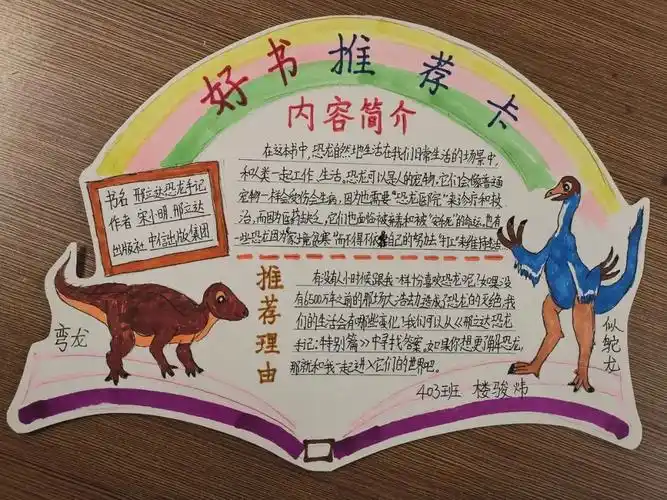 好书推荐卡
内容简介
在这本书中,恐龙自然地生活在我们日常生活的场景中,
和人类一起工作、生活。恐龙可以是人的宠物,它们会像普通
宠物一样会受伤会生病,因为也需要"恐龙医院"来治疗和救
治,而因为医药缺乏,它们也面临被
一些恐龙因为"家境贫寒"而不得不依靠自己的努力"打工"来维持生活
书名 邢立达恐龙手记
作者 宋小明.邢立达
出版社 中信出版集团
推荐理由
有没有人小时候跟我一样十分喜欢恐龙呢?如果没
有6500万年之前的那场大浩劫造成了恐龙的灭绝,我
们的生活会有哪些变化?我们可以从《邢立达恐龙
手记:特别篇》中寻找答案。如果你想更了解恐龙,
那就和我一起进入它们的世界吧。
403班 楼骏炜
弯龙
似鸵龙